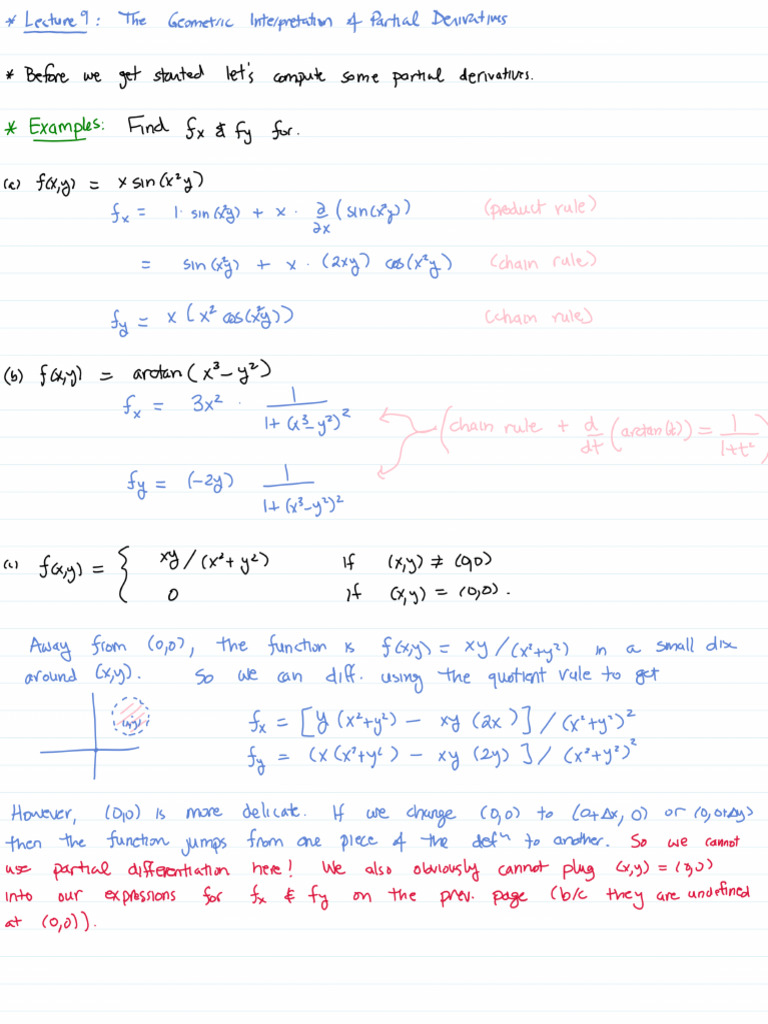 * Lecture 9: The Geometric Interpretation of Partial Derivatives
* Before we get started let's compute some partial derivatives.
* Examples: Find fx & fy for.
(a) f(x,y) = x sin(x²y)
fx = 1· sin(x²y) + x · ∂/∂x (sin(x²y)) (product rule)
= sin(x²y) + x · (2xy) cos(x²y) (chain rule)
fy = x (x² cos(x²y)) (chain rule)
(b) f(x,y) = arctan(x³-y²)
fx = 3x² · 1/(1+(x³-y²)²)
(chain rule + d/dt (arctan(t)) = 1/(1+t²))
fy = (-2y) 1/(1+(x³-y²)²)
(c) f(x,y) = { xy/(x²+y²) if (x,y) ≠ (0,0)
0 if (x,y) = (0,0).
Away from (0,0), the function is f(x,y) = xy/(x²+y²) in a small disc
around (x,y). So we can diff. using the quotient rule to get
(x,y)
fx = [y(x²+y²) - xy (2x)] / (x²+y²)²
fy = (x(x²+y²) - xy (2y)] / (x²+y²)²
However, (0,0) is more delicate. If we change (0,0) to (0+Δx, 0) or (0, 0+Δy)
then the function jumps from one piece of the defⁿ to another. So we cannot
use partial differentiation here! We also obviously cannot plug (x,y) = (0,0)
into our expressions for fx & fy on the prev. page (b/c they are undefined
at (0,0)).